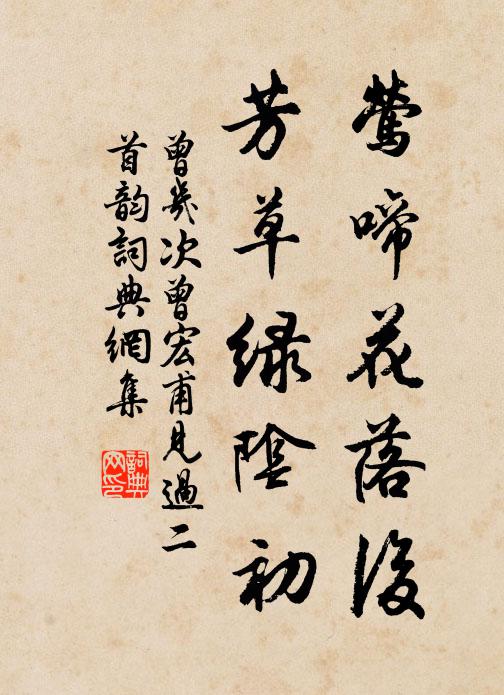 鶯啼花落後
芳草緑陰初
曾幾次曾宏甫見過二
首韵詞典網集
詞典
网印